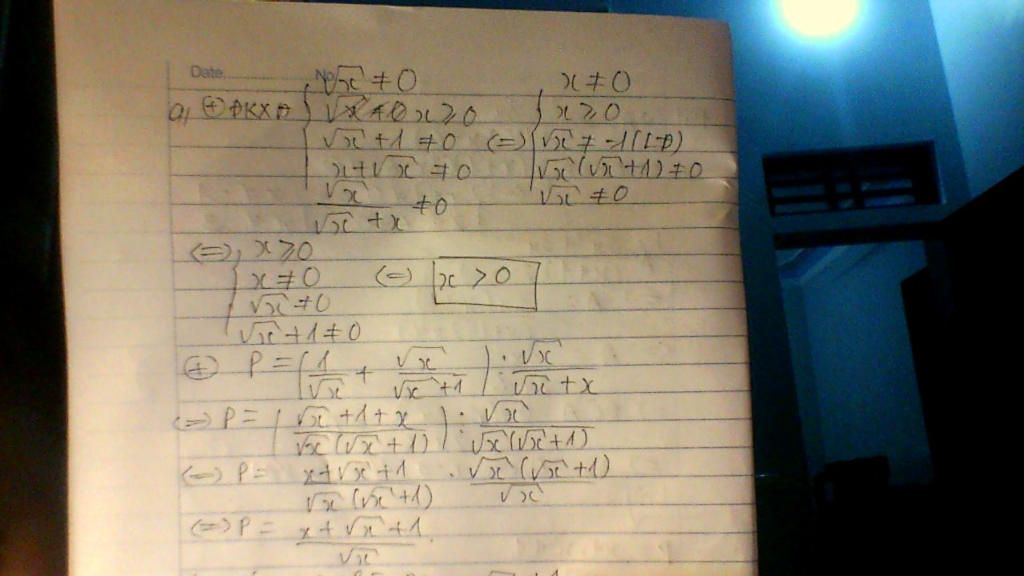 Date No √x ≠ 0 x ≠ 0
a, (+) ĐKXĐ { x ≥ 0 { x ≥ 0
√x + 1 ≠ 0 (=) √x ≠ -1 (LĐ)
x + √x ≠ 0 √x (√x + 1) ≠ 0
√x / (√x + x) ≠ 0 √x ≠ 0
(=) { x ≥ 0
x ≠ 0 (=) x > 0
√x ≠ 0
√x + 1 ≠ 0
(+) P = (1/√x + √x/(√x + 1)) : √x/(√x + x)
(=) P = ((√x + 1 + x)/(√x (√x + 1))) : √x/(√x (√x + 1))
(=) P = (x + √x + 1)/(√x (√x + 1)) . (√x (√x + 1))/√x
(=) P = (x + √x + 1)/√x.